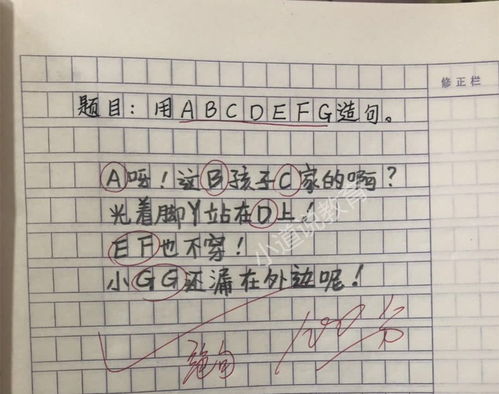 修正栏
题目：用ABCDEFG造句。
A呀！这B孩子C家的啊？
光着脚丫站在D上！
EF也不穿！
小GG还漏在外边呢！
小道说教育
绝句
100分